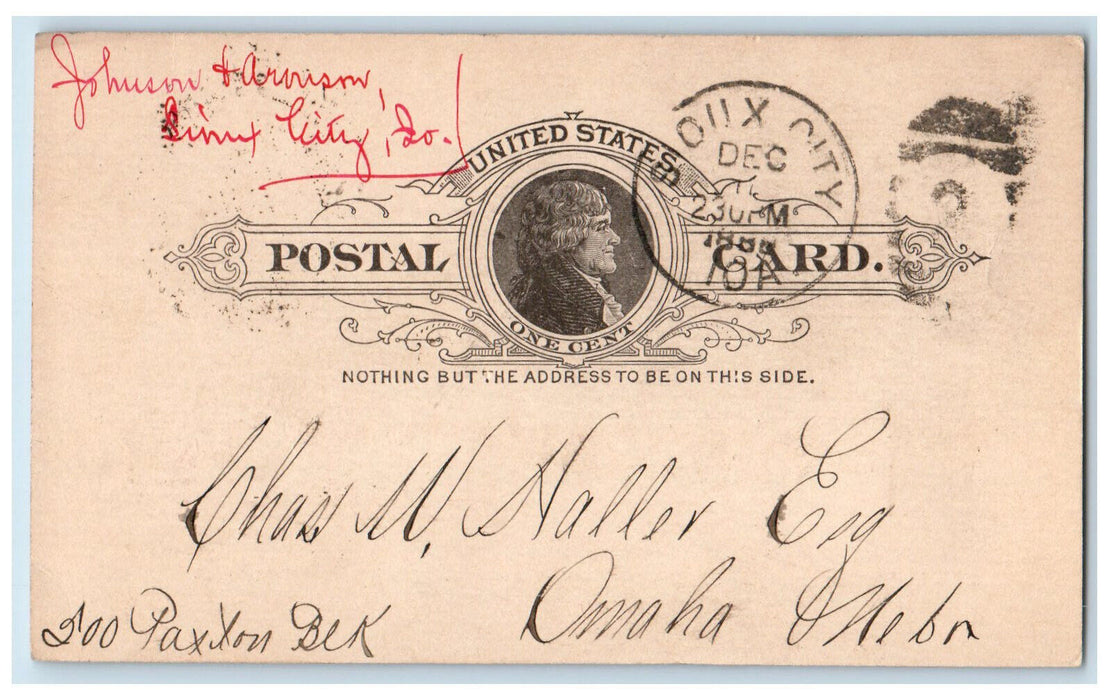 Johnson & Aronson,
Sioux City, Io.
UNITED STATES
SIOUX CITY
DEC
11
230PM
188
IOA
POSTAL CARD.
ONE CENT
NOTHING BUT THE ADDRESS TO BE ON THIS SIDE.
Chas W. Haller Esq
Omaha Nebr
500 Paxton Blk